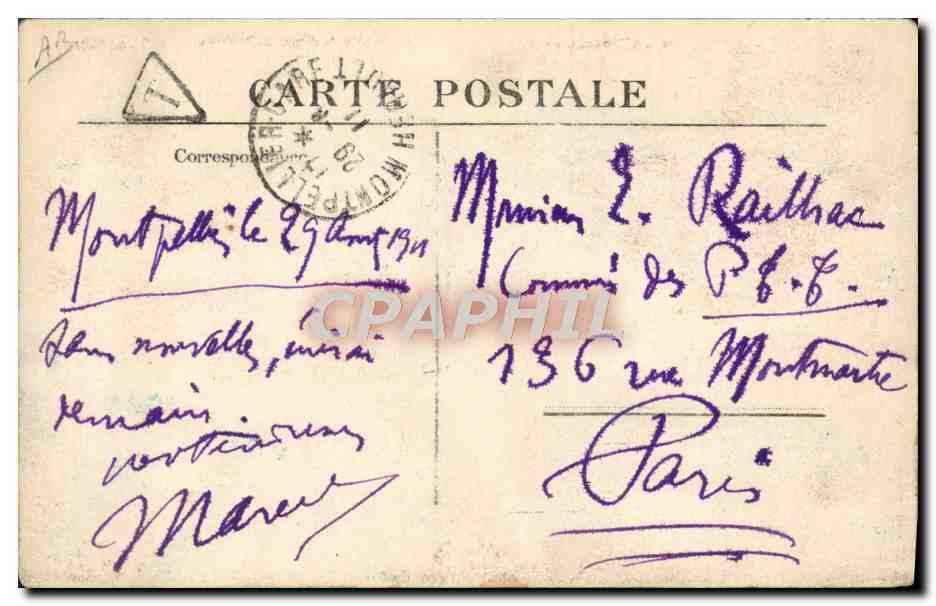 AB
T
CARTE POSTALE
MONTPELLIER-GARE HERAULT
* 29 - 8 11
Correspondance
Montpellier le 29 Aout 1911
Sans nouvelles, écrirai
demain.
Marcel
Monsieur E. Railhac
Commis des P.T.T.
136 rue Montmartre
Paris
CPAPHIL